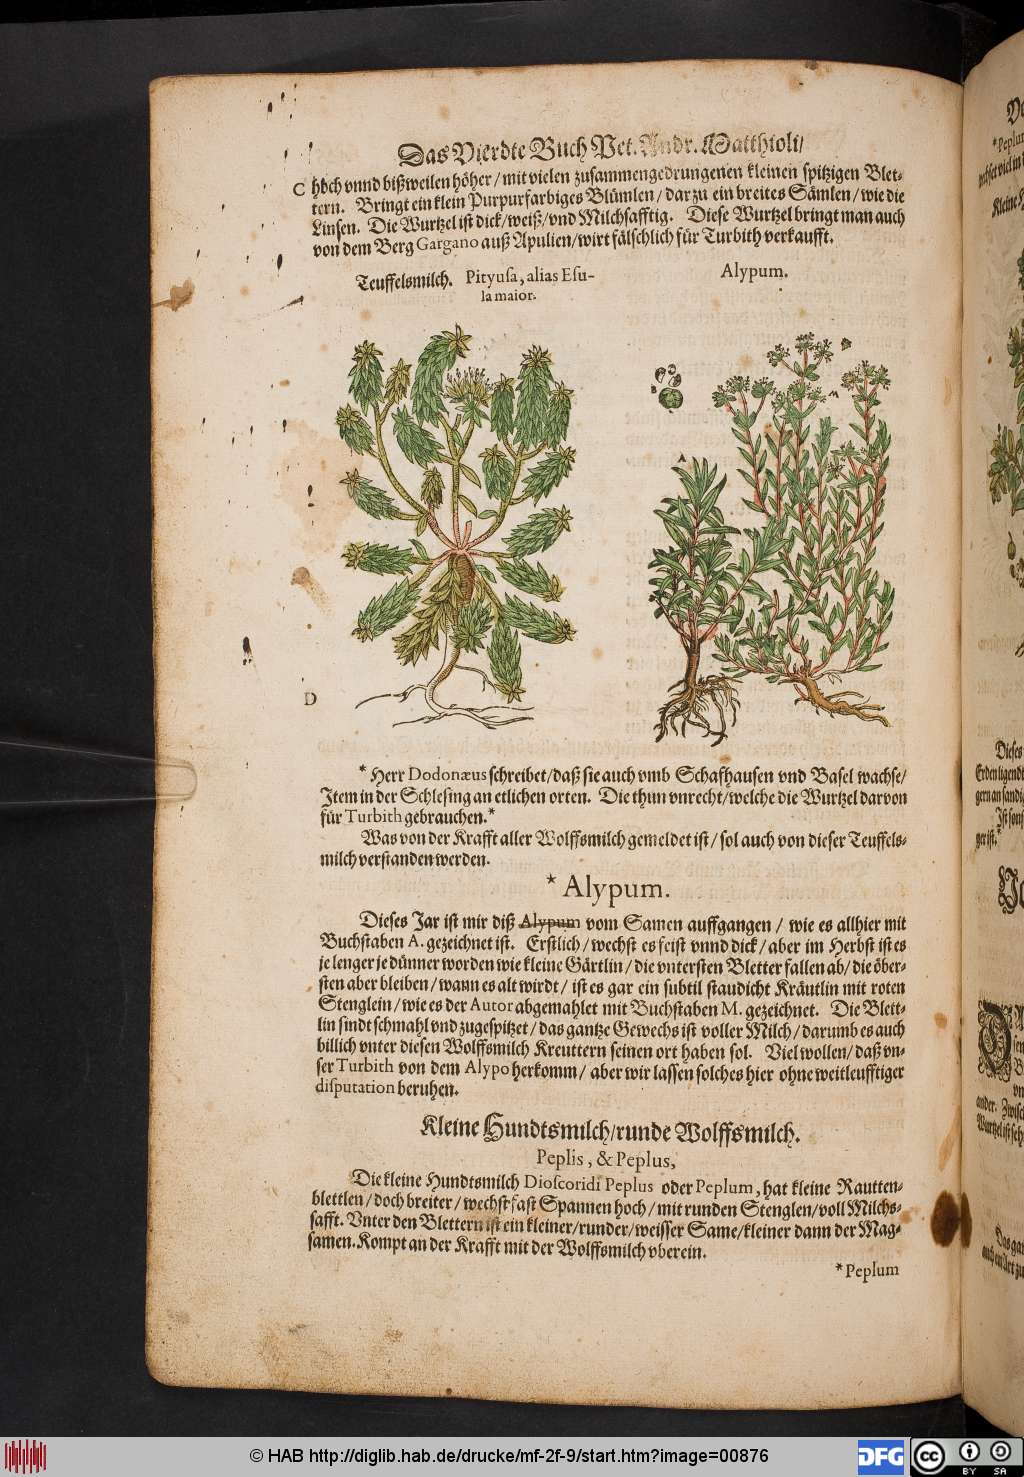 Das Vierdte Buch Pet. Andr. Matthioli/
C höch vnnd bißweilen höher / mit vielen zusammengedrungenen kleinen spitzigen Blet-
tern. Bringt ein klein Purpurfarbiges Blümlen / darzu ein breites Sämlen / wie die
Linsen. Die Wurtzel ist dick/weiß/vnd Milchsafftig. Diese Wurtzel bringt man auch
von dem Berg Gargano auß Apulien/wirt fälschlich für Turbith verkaufft.
Teuffelsmilch. Pityuſa, alias Eſu-
la maior.
Alypum.
A
M
D
* Herr Dodonæus schreibet/daß sie auch vmb Schafhausen vnd Basel wachse/
Item in der Schlesing an etlichen orten. Die thun vnrecht/welche die Wurtzel darvon
für Turbith gebrauchen.*
Was von der Krafft aller Wolffsmilch gemeldet ist / sol auch von dieser Teuffels-
milch verstanden werden.
* Alypum.
Dieses Jar ist mir diß Alypum vom Samen auffgangen / wie es allhier mit
Buchstaben A. gezeichnet ist. Erstlich / wechst es feist vnnd dick / aber im Herbst ist es
je lenger je dünner worden wie kleine Gärtlin / die vntersten Bletter fallen ab/ die öber-
sten aber bleiben / wann es alt wirdt / ist es gar ein subtil staudicht Kräutlin mit roten
Stenglein / wie es der Autor abgemahlet mit Buchstaben M. gezeichnet. Die Blett-
lin sindt schmahl vnd zugespitzet / das gantze Gewechs ist voller Milch / darumb es auch
billich vnter diesen Wolffsmilch Kreuttern seinen ort haben sol. Viel wollen/ daß vn-
ser Turbith von dem Alypo herkomm / aber wir lassen solches hier ohne weitleufftiger
disputation beruhen.
Kleine Hundtsmilch/runde Wolffsmilch.
Peplis, & Peplus,
Die kleine Hundtsmilch Dioſcoridi Peplus oder Peplum, hat kleine Rautten-
blettlen / doch breiter / wechst fast Spannen hoch / mit runden Stenglen/voll Milchs-
safft. Vnter den Blettern ist ein kleiner/runder/weisser Same/kleiner dann der Mag-
samen. Kompt an der Krafft mit der Wolffsmilch vberein.
* Peplum
© HAB http://diglib.hab.de/drucke/mf-2f-9/start.htm?image=00876
DFG
cc
BY SA